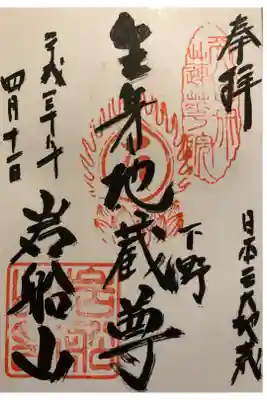 奉拝
日本三大地蔵
下野
生身地蔵尊
岩船山
平成三十年
四月十一日